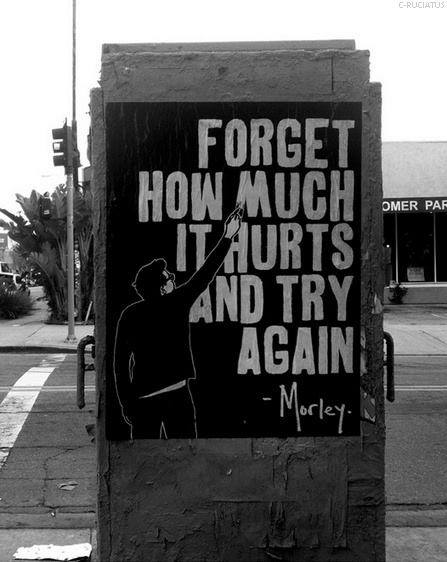 C-RUCIATUS
FORGET
HOW MUCH
IT HURTS
AND TRY
AGAIN
- Morley.
OMER PAR